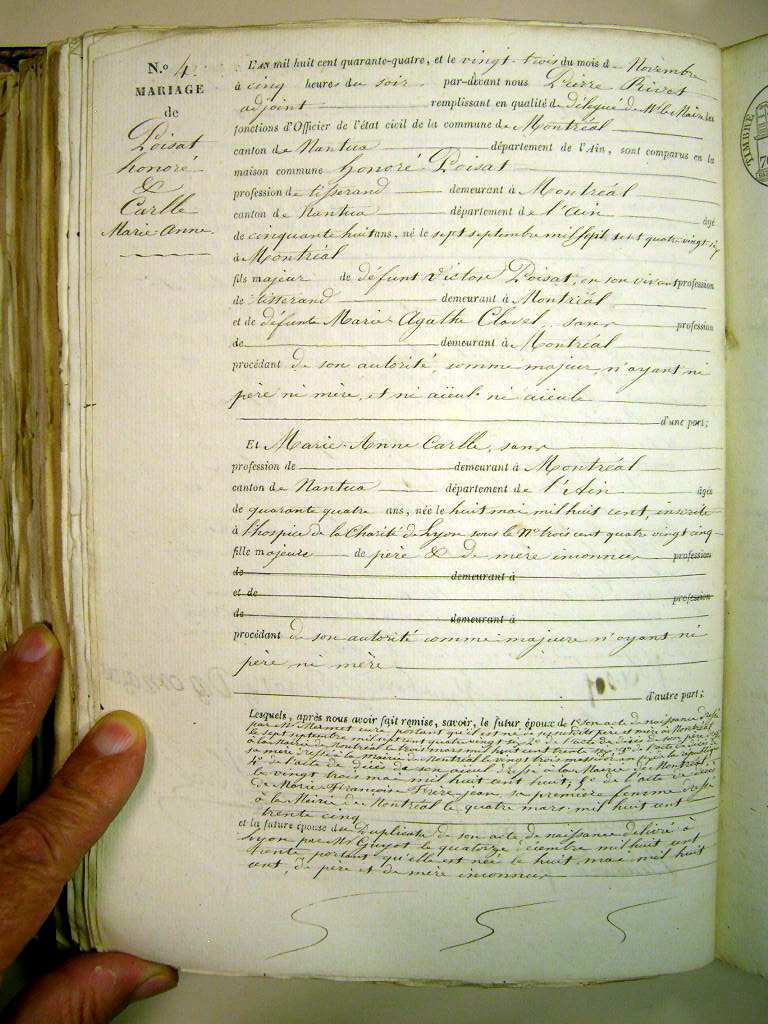 N.° 4.
MARIAGE
de
Poisat
honoré
&
Carlle
Marie Anne
L'AN mil huit cent quarante-quatre, et le vingt-trois du mois d Novembre
à cinq heures du soir par-devant nous Pierre Rivet
adjoint remplissant en qualité de délégué de Mr le Maire les
fonctions d'Officier de l'état civil de la commune de Montréal
canton de Nantua département de l'Ain, sont comparus en la
maison commune honoré Poisat
profession de tisserand demeurant à Montréal
canton de Nantua département de l'Ain âgé
de cinquante huit ans, né le sept septembre mil sept cent quatre vingt six
à Montréal
fils majeur de défunt Victor Poisat, en son vivant profession
de tisserand demeurant à Montréal
et de défunte Marie Agathe Clavel, sans profession
de demeurant à Montréal
procédant de son autorité, comme majeur, n'ayant ni
père ni mère, et ni aïeul ni aïeule
d'une part;
Et Marie Anne Carlle, sans
profession de demeurant à Montréal
canton de Nantua département de l'Ain âgée
de quarante quatre ans, née le huit mai mil huit cent, inscrite
à l'hospice de la Charité de Lyon sous le No trois cent quatre vingt cinq
fille majeure de père & de mère inconnus profession
de demeurant à
et de profession
de demeurant à
procédant de son autorité comme majeure n'ayant ni
père ni mère
d'autre part;
Lesquels, après nous avoir fait remise, savoir, le futur époux de 1° son acte de naissance
par Mr Mermet curé portant qu'il est né de père et mère à Montréal
le sept septembre mil sept cent quatre vingt six, 2° de l'acte de décès de son père
à la Mairie de Montréal le trois mars mil huit cent trente 3° de l'acte de décès
sa mère dressé à la Mairie de Montréal le vingt trois république
4° de l'acte de décès de son aïeul dressé à la Mairie de Montréal,
le vingt trois mai mil huit cent huit; 5° de l'acte de décès
de Marie Françoise Frère jean, sa première femme dressé
à la Mairie de Montréal le quatre mars mil huit cent
trente cinq
et la future épouse du Duplicata de son acte de naissance délivré à
Lyon par Mr Guyot le quatorze mil huit cent
trente portant qu'elle est née le huit mai mil huit
cent, de père et de mère inconnus
TIMBRE